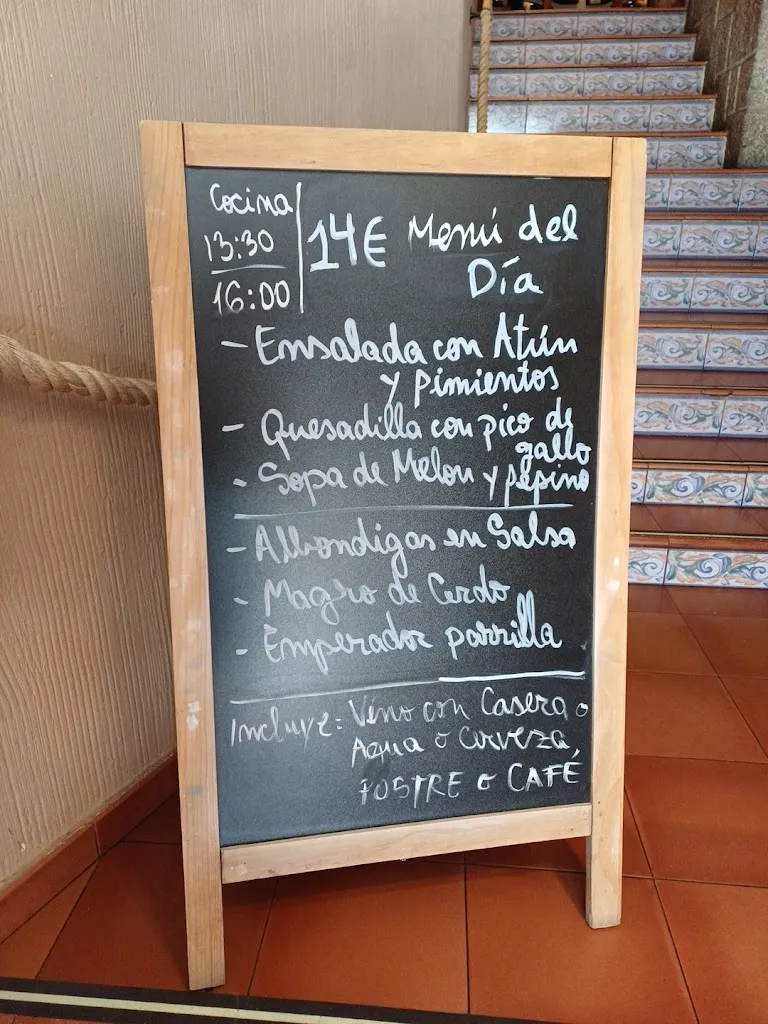 Cocina
13:30
16:00
14€ Menú del
Día
- Ensalada con Atún
y pimientos
- Quesadilla con pico de
gallo
- Sopa de Melon y pepino
- Albondigas en Salsa
- Magro de Cerdo
- Emperador parrilla
Incluye: Vino con Casera o
Agua o Cerveza,
POSTRE o CAFÉ